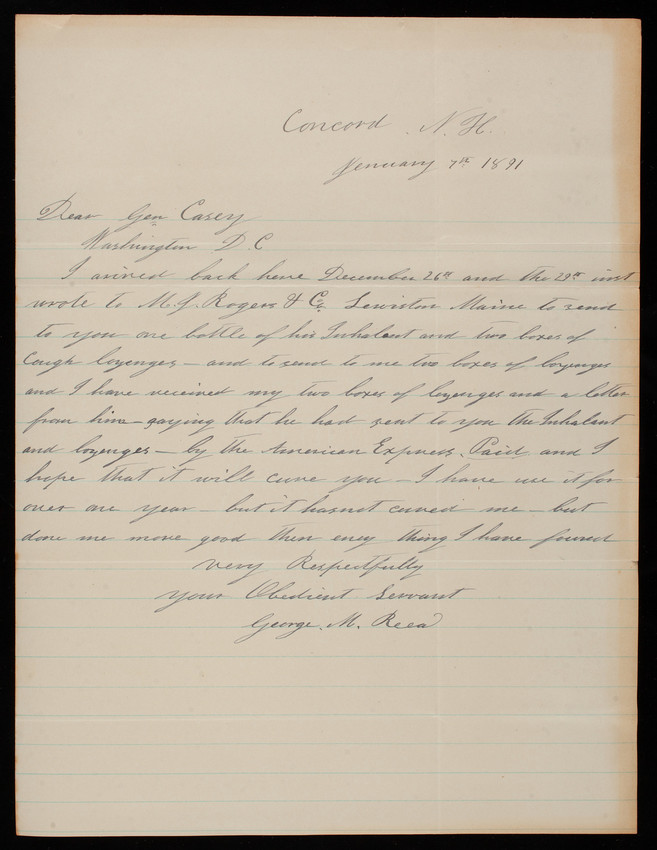 Concord. N. H.
Jenuary 7th 1891
Dear Gen Casey
Washington D. C
I arived back here December 26th and the 29th inst
wrote to M. J. Rogers & Co. Lewiston Maine to send
to you one bottle of his Inhalent and two boxes of
Cough lozenges – and to send to me two boxes of lozenges
and I have received my two boxes of lozenges and a letter
from him – saying that he had sent to you the Inhalant
and lozenges – by the American Express. Paid and I
hope that it will cure you – I have use it for
over one year – but it has not cured me – but
done me more good then eney thing I have found
very Respectfully
your Obedient Servant
George. M. Reed